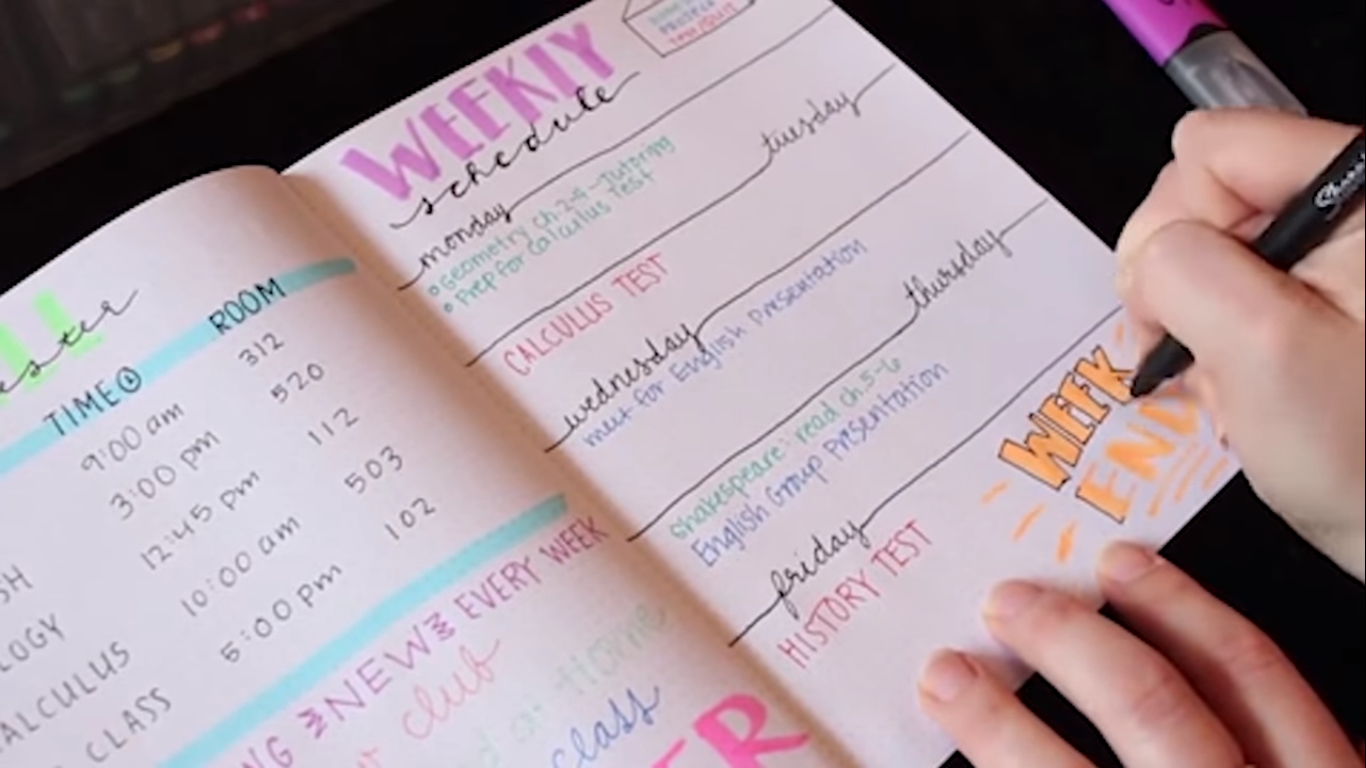 TIME
ROOM
9:00 am
312
3:00 pm
520
12:45 pm
112
10:00 am
503
CALCULUS
5:00 pm
102
CLASS
NEW EVERY WEEK
club
at HOME
class
WEEKLY
schedule
TEST/QUIZ
monday
Geometry ch. 2-4 - Tutoring
Prep for Calculus Test
tuesday
CALCULUS TEST
wednesday
meet for English Presentation
thursday
Shakespeare: read ch. 5-6
English Group Presentation
friday
HISTORY TEST
WEEK
END
Sharpie